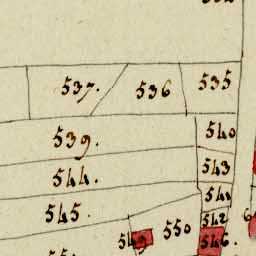 537. 536 535
539. 540
544. 543
545. 541
550 542
549 546.